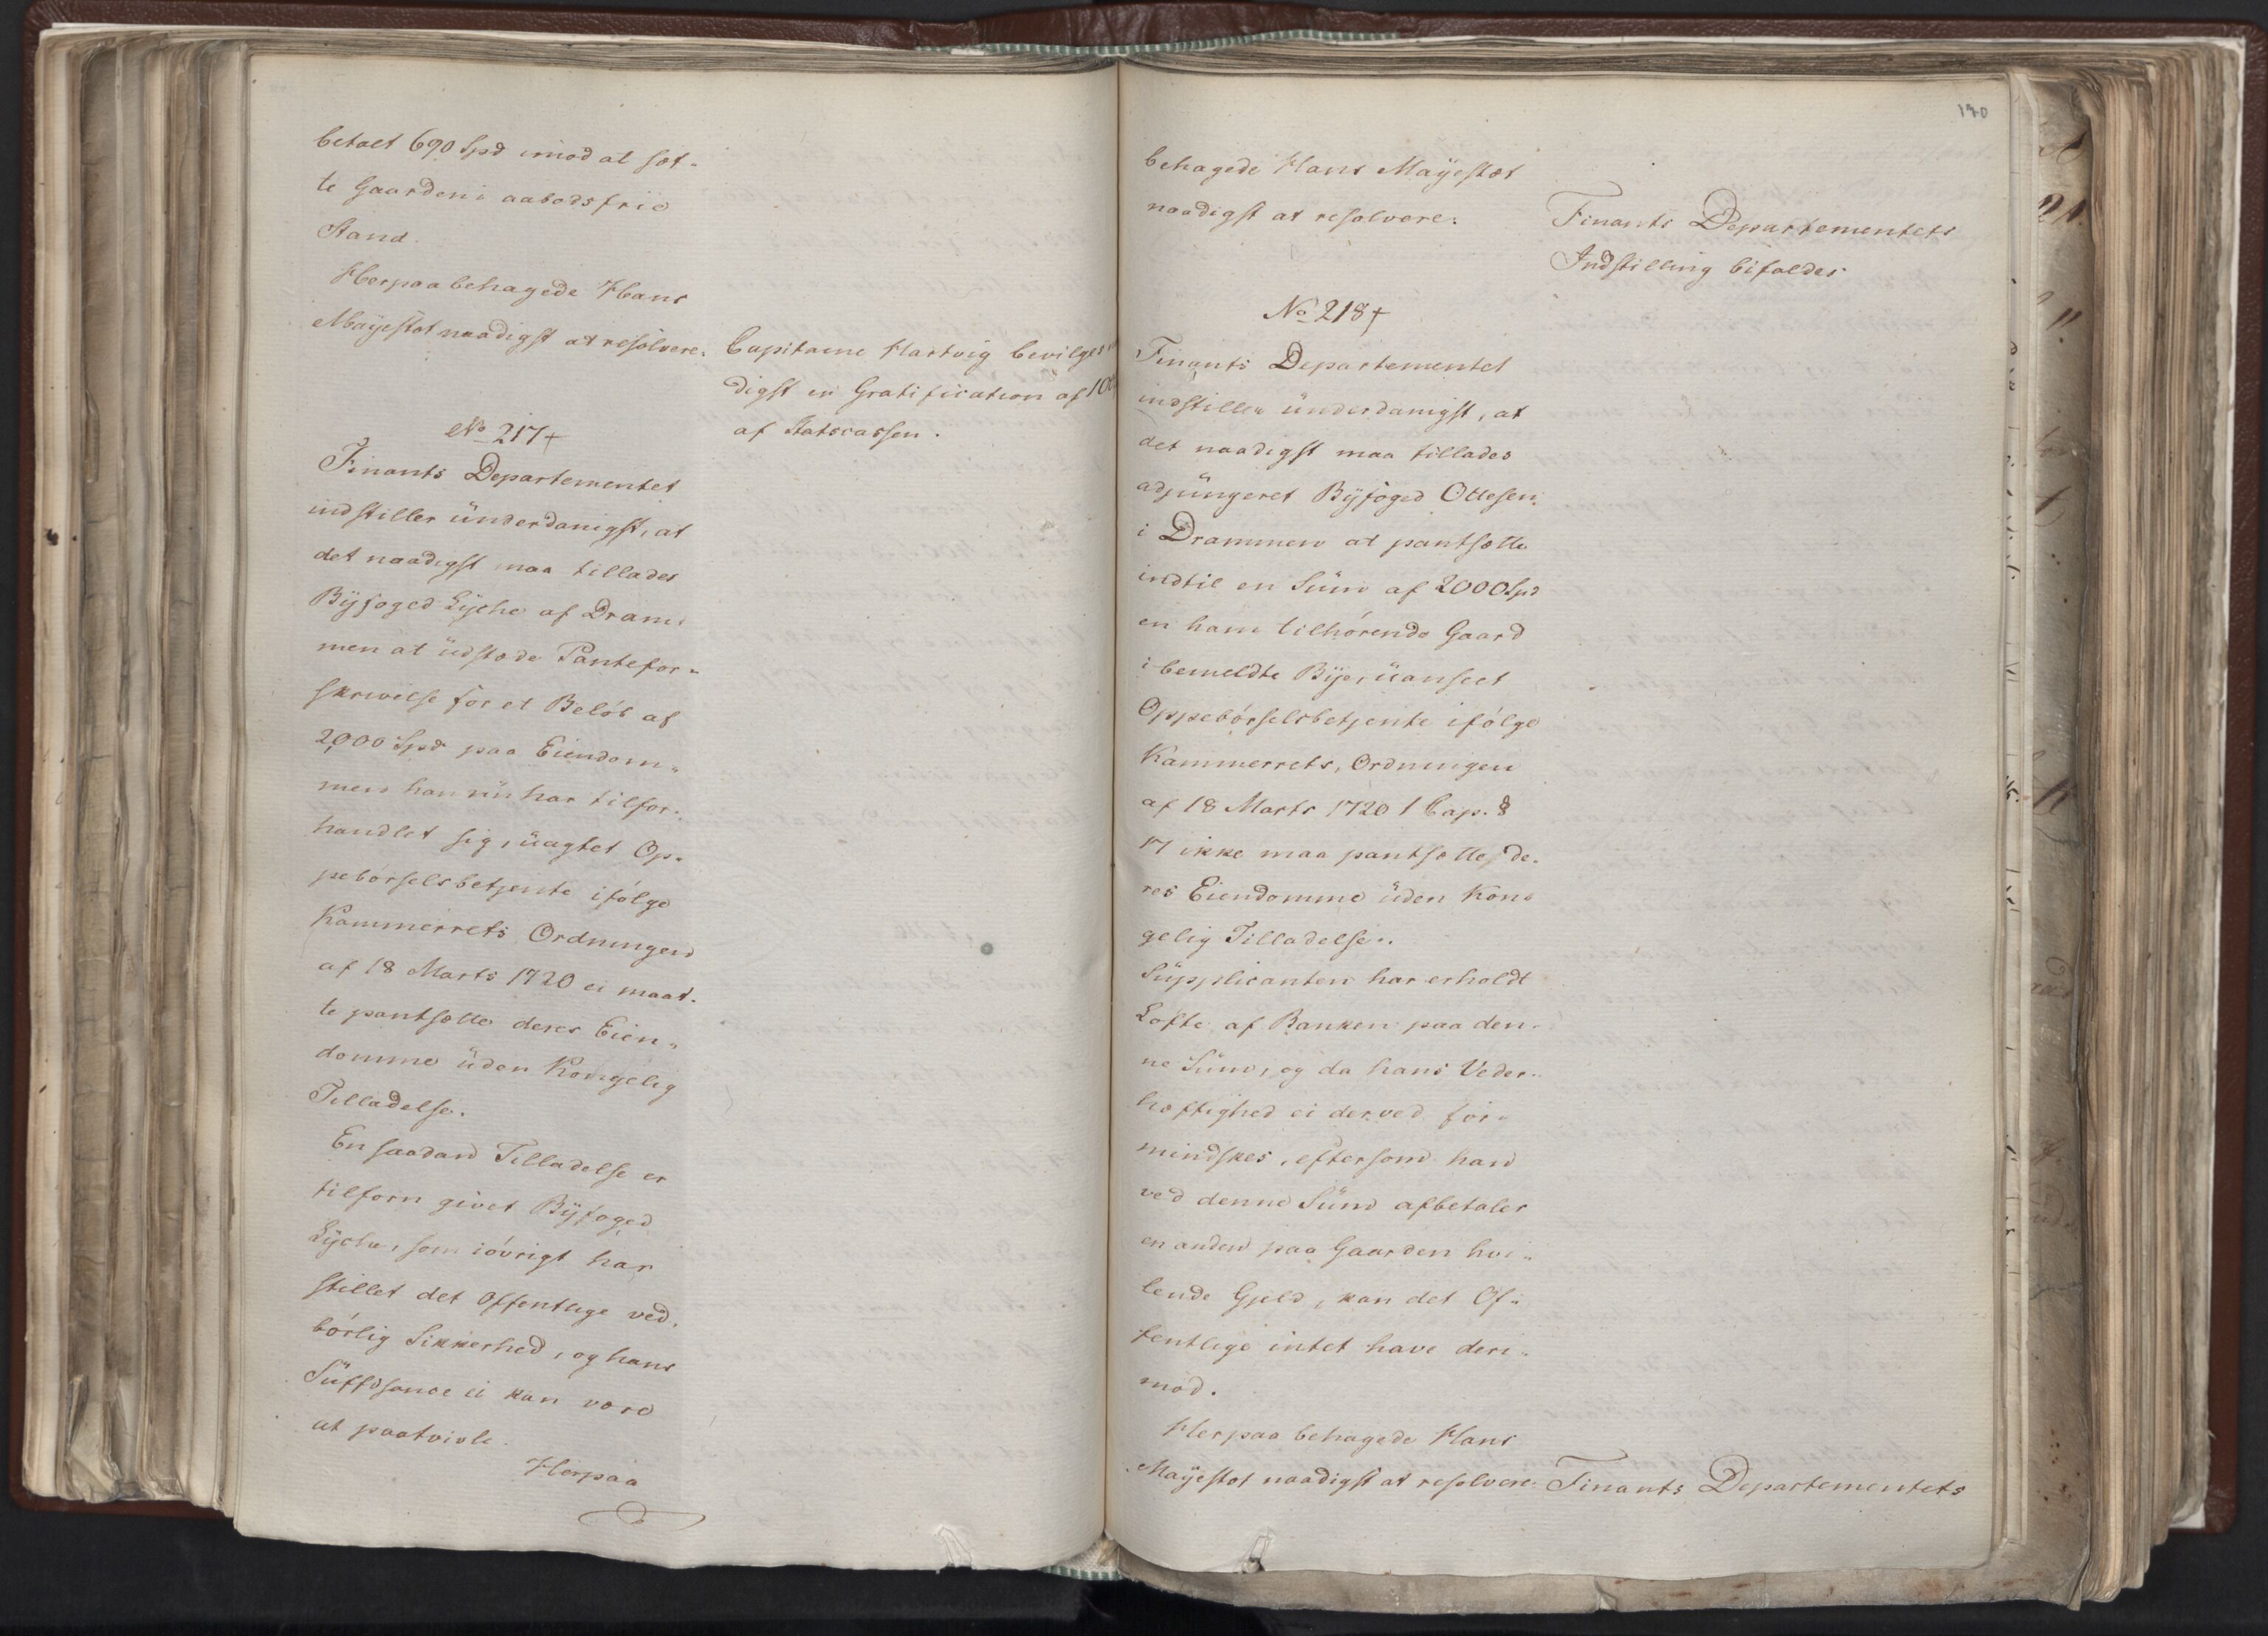 betalt 690 Spd imod at sæt-
te Gaarden i aabodsfrie
Stand.
Herpaa behagede Hans
Mayestæt naadigst at resolvere:
Capitaine Hartvig bevilges
digst en Gratification af 100
af Statscassen.
No 217 +
Finants Departementet
indstiller ünderdanigst, at
det naadigst maa tillades
Byfoged Lyche af Dram-
men at üdstæde Pantefor-
skrivelse for et Beløb af
2,000 Spd paa Eiendom-
men han nü har tilfor-
handlet sig, üagtet Op-
peborselsbetjente ifølge
Kammerrets Ordningen
af 18 Marts 1720 ei maat-
te pantsætte deres Eien-
domme üden Kongelig
Tilladelse.
En saadan Tilladelse er
tilforn givet Byfoged
Lyche, som iøvrigt har
stillet det Offentlige ved-
børlig Sikkerhed, og hans
Süffisance ei kan være
at paatvivle.
Herpaa
190
behagede Hans Mayestæt
naadigst at resolvere:
Finants Departementets
Indstilling bifaldes
No 218 +
Finants Departementet
indstiller ünderdanigst, at
det naadigst maa tillades
adjüngeret Byfoged Ottesen
i Drammen at pantsætte
indtil en Süm af 2000 Spd
en ham tilhørende Gaard
i bemeldte Bye, üanseet
Oppebørselsbetjente ifølge
Kammerrets, Ordningen
af 18 Marts 1720 1 Cap. §
17 ikke maa pantsætte de-
res Eiendomme üden Kon-
gelig Tilladelse.
Süpplicanten har erholdt
Løfte af Banken paa den-
ne Süm, og da hans Veder-
hæftighed ei derved for-
mindskes, eftersom han
ved denne Süm afbetaler
en anden paa Gaarden hvi-
lende Gjeld, kan det Of-
fentlige intet have deri-
mod.
Herpaa behagede Hans
Mayestæt naadigst at resolvere:
Finants Departementets